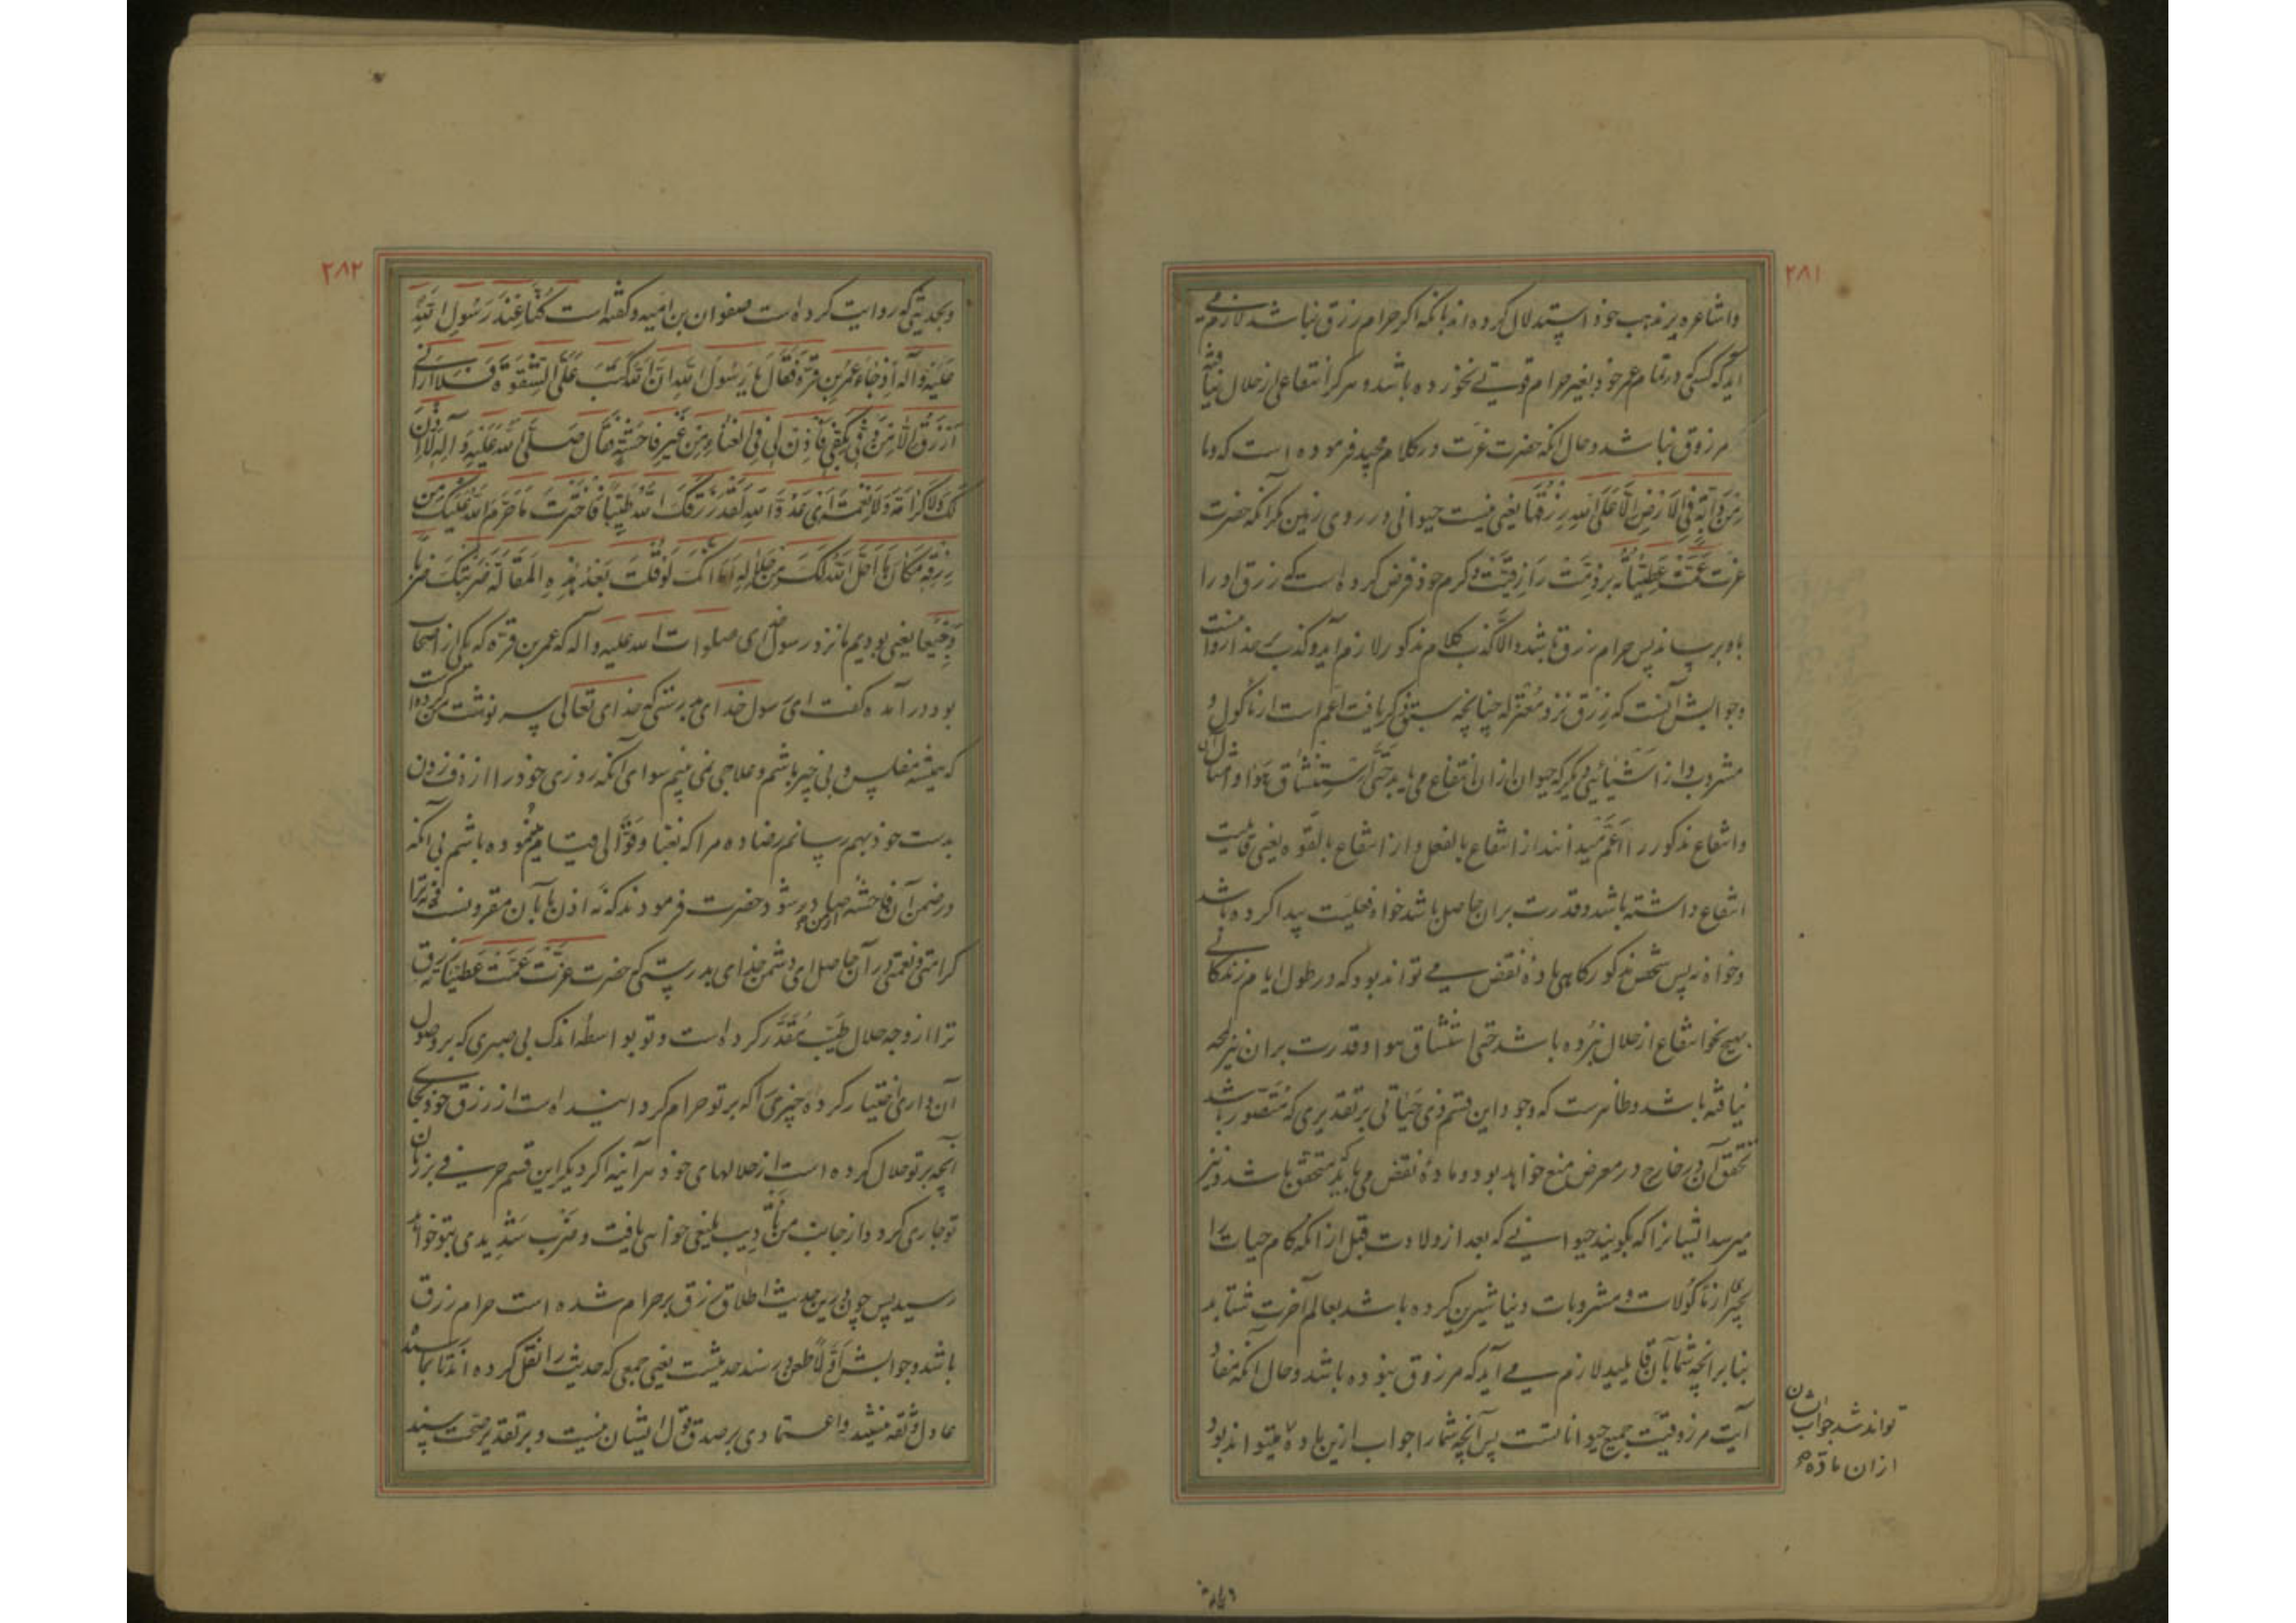 ٢٨١
واشاعره بر مذهب خود استدلال کرده‌اند بانکه اکر حرام رزق نباشد لازم می
آید که کسی که در تمام عمر خود بغیر حرام قوتی نخورده باشد و هرکز انتفاعی از حلال نیافته
مرزوق نباشد و حال انکه حضرت عزت در کلام مجید فرموده است که وما
مِن دَابَّةٍ فِي الاَرْضِ اِلَّا عَلَى اللهِ رِزْقُهَا یعنی نیست حیوانی در روی زمین مکر آنکه حضرت
عزت عَمَّتْ عَطِیّاتُه بر ذمت رازقیّت و کرم خود فرض کرده است که رزق او را
باو برساند پس حرام رزق باشد والّا کذب کلام مذکور لازم آید و کذب بر خدا روا نیست
وجوابش آنست که رزق نزد معتزله چنانچه سبق ذکر یافت اعم است از ماکول و
مشروب و از اشیائی دیکر که حیوان از ان انتفاع می یابد حتی استنشاق هوا و امثال ان
وانتفاع مذکور را اعم میدانند از انتفاع بالفعل و از انتفاع بالقوه یعنی قابلیت
انتفاع داشته باشد و قدرت بران حاصل باشد خواه فعلیت پیدا کرده باشد
وخواه نه پس شخص مذکور کاهی ماده نقض می تواند بود که در طول ایام زندکانی
بهیچ نحو انتفاع از حلال نبرده باشد حتی استنشاق هوا و قدرت بران نیز
نیافته باشد و ظاهرست که وجود این قسم ذی حیاتی بر تقدیری که متصور باشد
تحقق آن در خارج در معرض منع خواهد بود و ماده نقض می باید متحقق باشد و نیز
میرسد ایشانرا که بکویند حیوانی که بعد از ولادت قبل از انکه کام حیات را
بچیزی از ماکولات و مشروبات دنیا شیرین کرده باشد بعالم آخرت شتابد
بنا بر انچه شما بآن قایلید لازم می آید که مرزوق نبوده باشد و حال انکه مفاد
آیت مرزوقیت جمیع حیواناتست پس آنچه شما را جواب ازین ماده میتواند بود
تواند شد جواب ایشان
ازان ماده
٢٨٢
وبحدیثی که روایت کرده است صفوان بن امیه و کفته است کُنَّا عِنْدَ رَسُولِ اللهِ
عَلَیْهِ وَآلِهِ اِذْ جَاءَ عُمَرُ بن قُرَّة فَقَالَ یَا رَسُولَ اللهِ اِنَّ اللهَ کَتَبَ عَلَیَّ الشِّقْوَةَ فَلَا اَرَانِی
اُرْزَقُ اِلَّا مِنْ دُفِّی بِکَفِّی فَأْذَنْ لِی فِی الْغِنَاءِ مِنْ غَیْرِ فَاحِشَةٍ فَقَالَ صَلَّی اللهُ عَلَیْهِ وَآلِهِ لَا اِذْنَ
لَکَ وَلَا کَرَامَةَ وَلَا نِعْمَةَ اَیْ عَدُوَّ اللهِ لَقَدْ رَزَقَکَ اللهُ طَیِّبًا فَاخْتَرْتَ مَا حَرَّمَ اللهُ عَلَیْکَ مِنْ
رِزْقِهِ مَکَانَ مَا اَحَلَّ اللهُ لَکَ مِنْ حَلَالِهِ اَمَا اِنَّکَ لَوْ قُلْتَ بَعْدَ هٰذِهِ الْمَقَالَةَ ضَرَبْتُکَ ضَرْبًا
وَجِیعًا یعنی بودیم ما نزد رسول خدای صلوات الله علیه و آله که عمر بن قره که یکی از اصحاب
بود در آمده کفت ای رسول خدای بدرستی که خدای تعالی سرنوشت من کرده است
که همیشه مفلس و بی چیز باشم و علاجی نمی بینم سوای آنکه روزی خود را از دف زدن
بدست خود بهم رسانم رضا ده مرا که بغنا و قوالی قیام می نموده باشم بی آنکه
در ضمن آن فاحشه از من صادر شود حضرت فرمودند که نه اذن ما بآن مقرونست و نه ترا
کرامتی و نعمتی در آن حاصل ای دشمن خدای بدرستی که حضرت عزت عمّت عطیّاته رزق
ترا از وجه حلال طیّب مقدّر کرده است و تو بواسطه اندک بی صبری که بر وصول
آن داری اختیار کرده چیزی را که بر تو حرام کردانیده است از رزق خود بجای
آنچه بر تو حلال کرده است از حلالهای خود هرآینه اکر دیکر این قسم حرفی بر زبان
تو جاری کردد از جانب من تأدیب بلیغی خواهی یافت و ضرب شدیدی بتو خواهد
رسید پس چون درین حدیث اطلاق رزق بر حرام شده است حرام رزق
باشد وجوابش اوّلاً طعن در سند حدیثست یعنی جمعی که حدیث را نقل کرده اند تا بما رسیده
عادل و ثقه نیستند و اعتمادی بر صدق قول ایشان نیست و بر تقدیر صحت سند